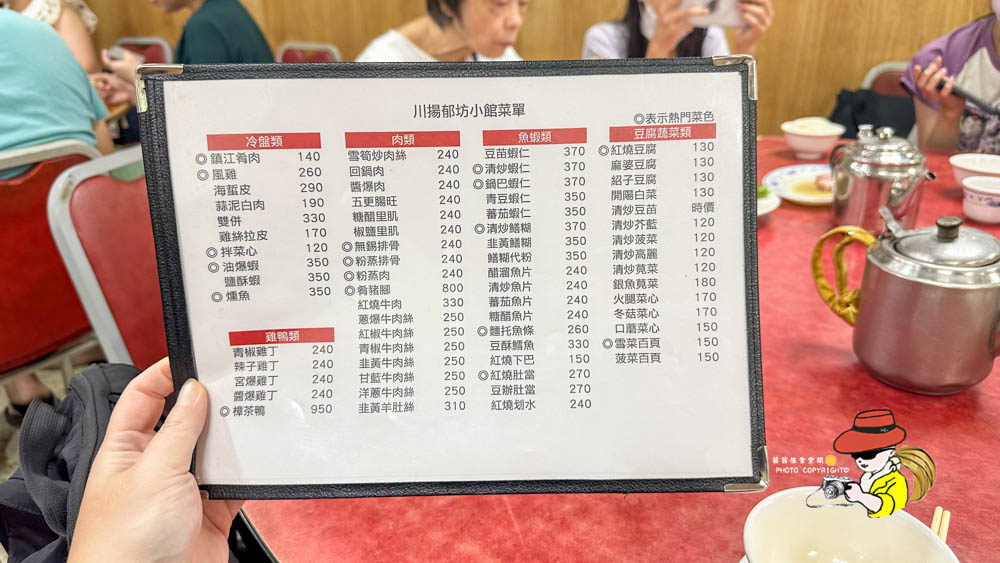 川揚郁坊小館菜單
◎表示熱門菜色
冷盤類
◎鎮江肴肉 140
◎風雞 260
海蜇皮 290
蒜泥白肉 190
雙併 330
雞絲拉皮 170
◎拌菜心 120
◎油爆蝦 350
鹽酥蝦 350
◎燻魚 350
雞鴨類
青椒雞丁 240
辣子雞丁 240
宮爆雞丁 240
醬爆雞丁 240
◎樟茶鴨 950
肉類
雪筍炒肉絲 240
回鍋肉 240
醬爆肉 240
五更腸旺 240
糖醋里肌 240
椒鹽里肌 240
◎無錫排骨 240
◎粉蒸排骨 240
◎粉蒸肉 240
◎肴豬腳 800
紅燒牛肉 330
蔥爆牛肉絲 250
紅椒牛肉絲 250
青椒牛肉絲 250
韭黃牛肉絲 250
甘藍牛肉絲 250
洋蔥牛肉絲 250
韭黃羊肚絲 310
魚蝦類
豆苗蝦仁 370
◎清炒蝦仁 370
◎鍋巴蝦仁 370
青豆蝦仁 350
蕃茄蝦仁 350
◎清炒鱔糊 370
韭黃鱔糊 350
鱔糊代粉 350
醋溜魚片 240
清炒魚片 240
蕃茄魚片 240
糖醋魚片 240
◎麵托魚條 260
豆酥鱈魚 330
紅燒下巴 150
◎紅燒肚當 270
豆辦肚當 270
紅燒划水 240
豆腐蔬菜類
◎紅燒豆腐 130
麻婆豆腐 130
紹子豆腐 130
開陽白菜 130
清炒豆苗 時價
清炒芥藍 120
清炒菠菜 120
清炒高麗 120
清炒莧菜 120
銀魚莧菜 180
火腿菜心 170
冬菇菜心 170
口蘑菜心 150
◎雪菜百頁 150
菠菜百頁 150
PHOTO COPYRIGHT©